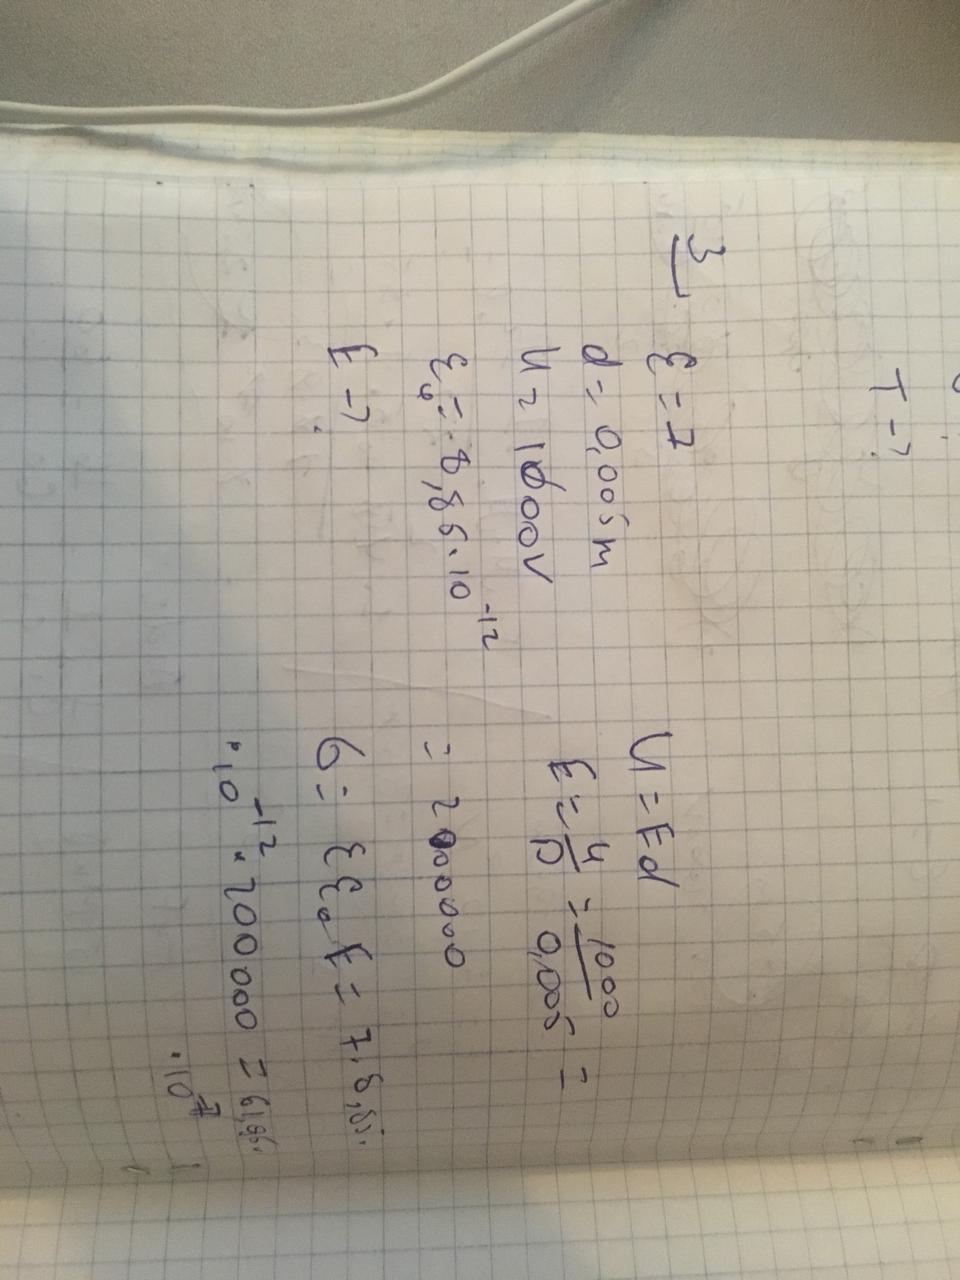 T - ?
3
ε = 7
d = 0,005m
U = 1000V
ε₀ = 8,85·10⁻¹²
E - ?
U = Ed
E = U/D = 1000/0,005 =
= 200000
б = εε₀E = 7·8,85·
·10⁻¹²·200000 =
·10⁻⁷